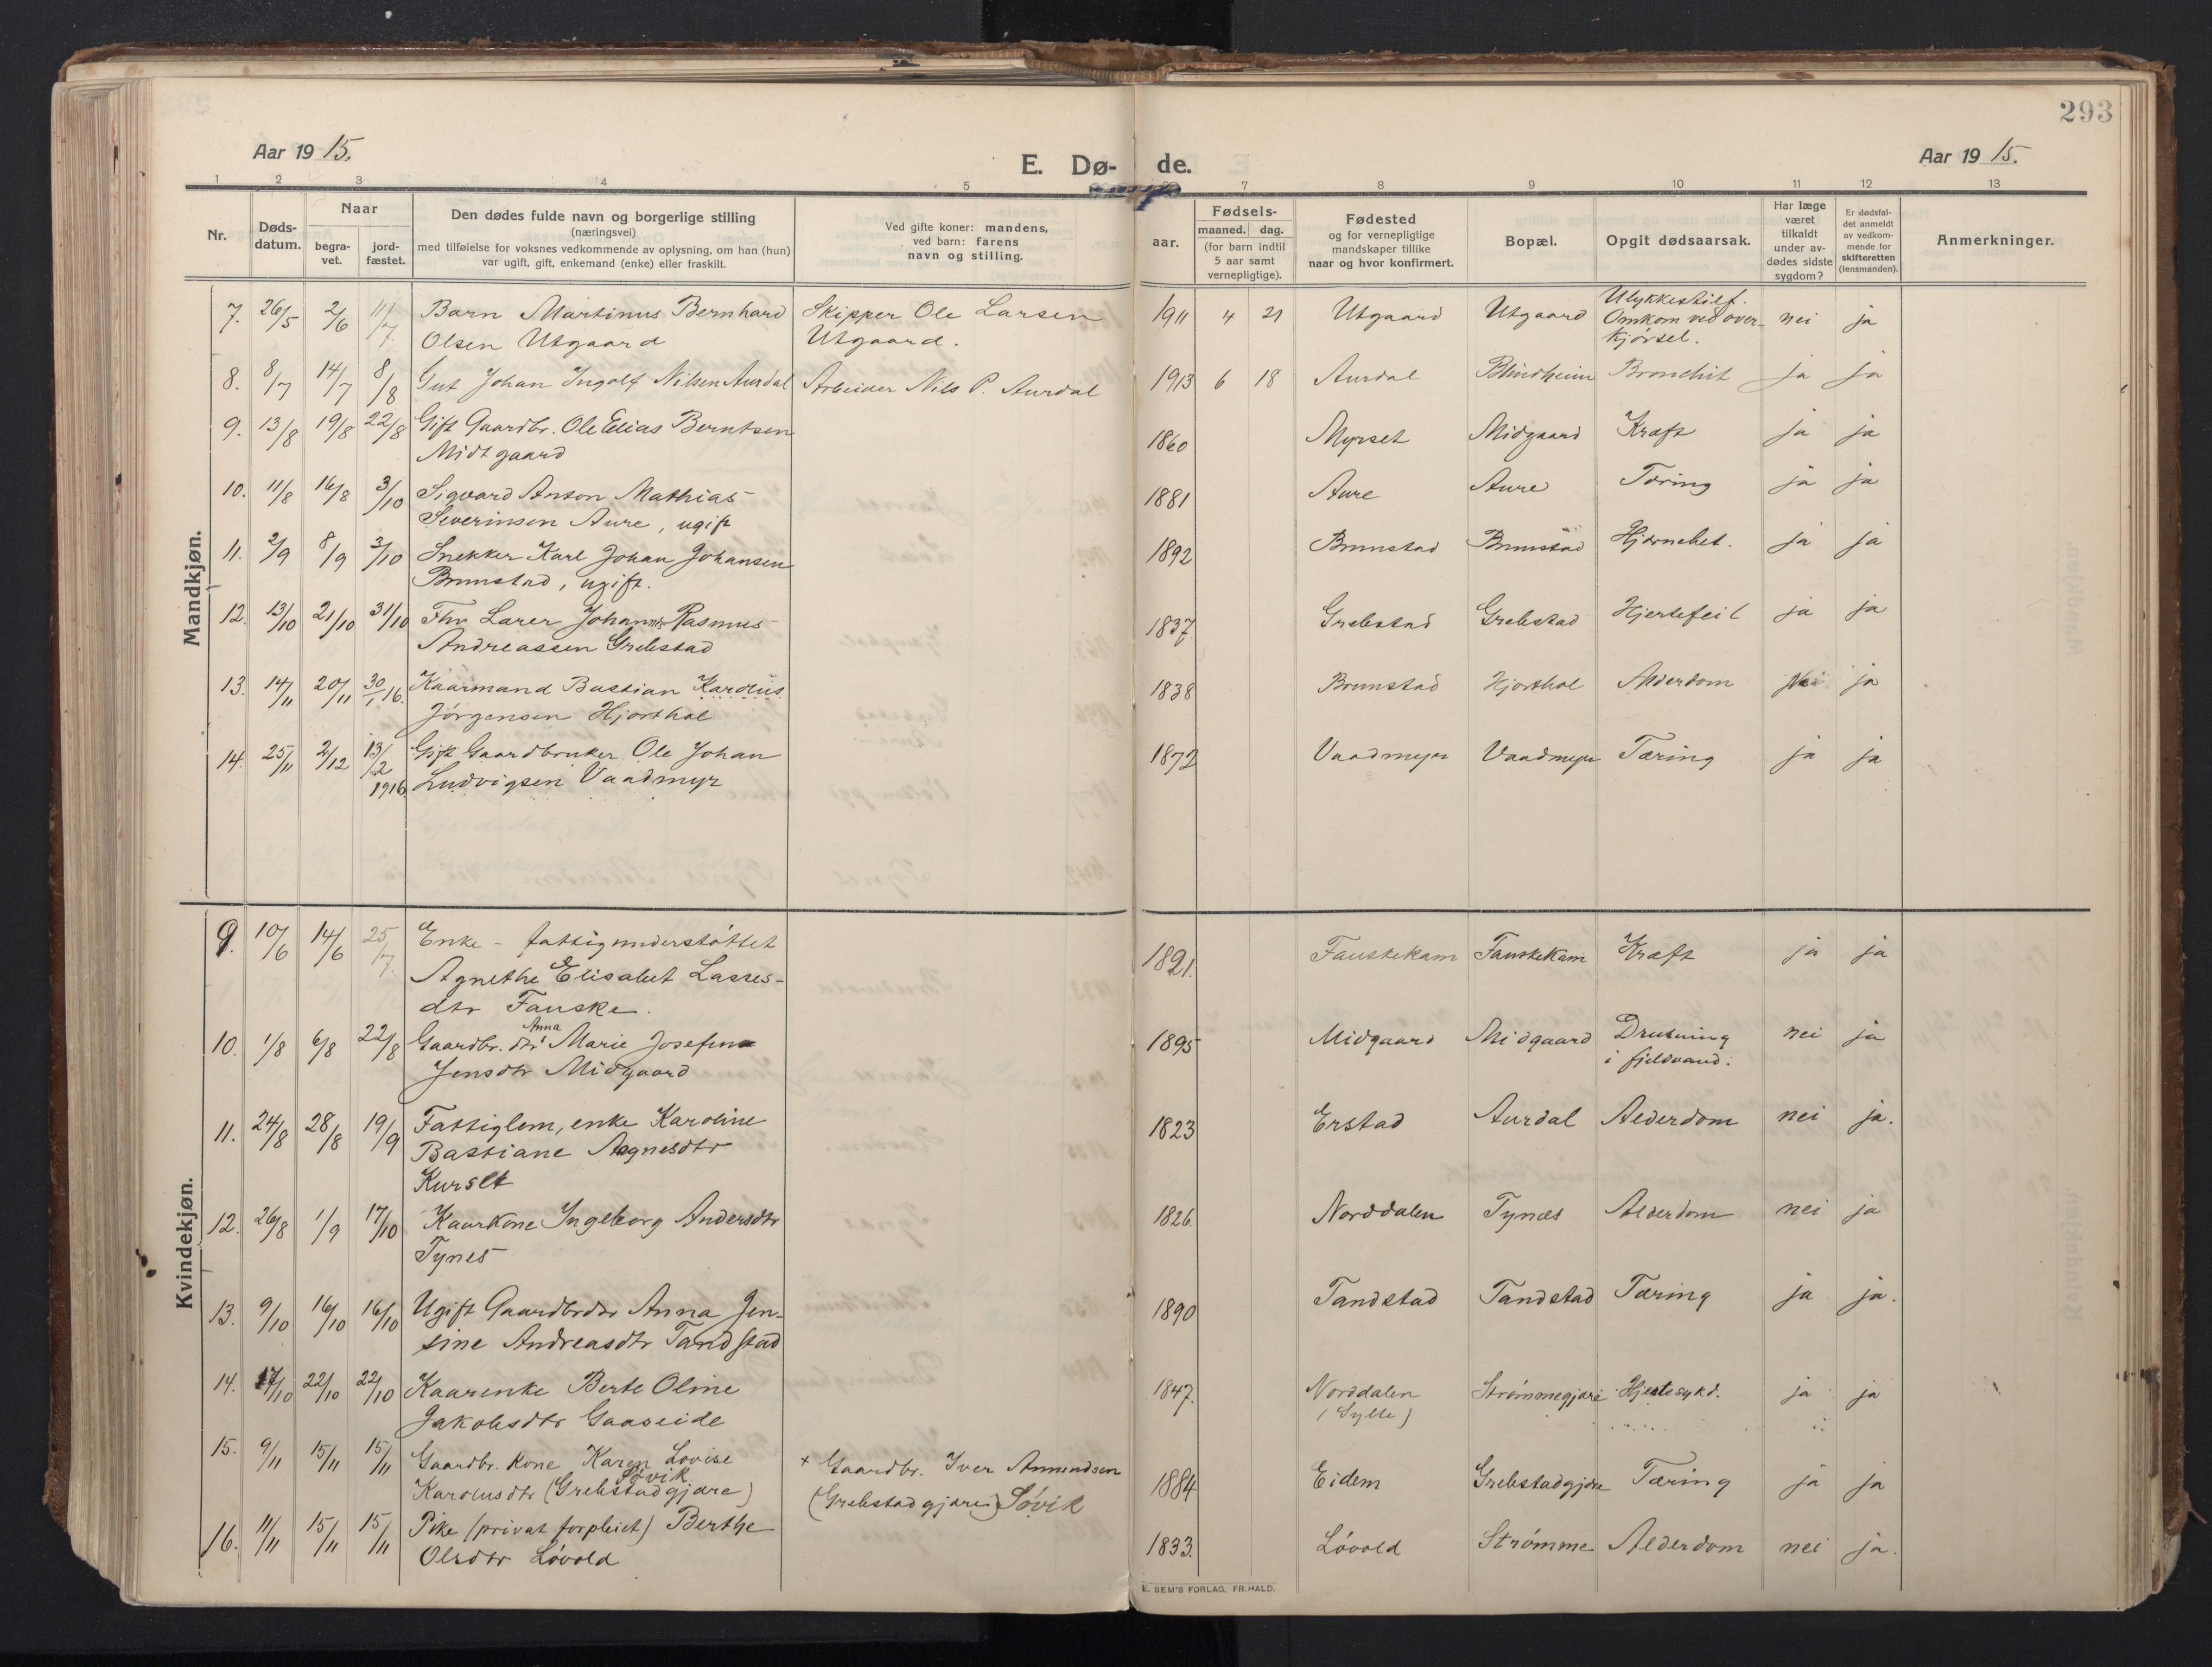 293
Aar 1915.
E. Dø- de.
Aar 1915.
1 2 3 4 5 7 8 9 10 11 12 13
Nr.
Døds-
datum.
Naar
begra-
vet.
jord-
fæstet.
Den dødes fulde navn og borgerlige stilling
(næringsvei)
med tilføielse for voksnes vedkommende av oplysning, om han (hun)
var ugift, gift, enkemand (enke) eller fraskilt.
Ved gifte koner: mandens,
ved barn: farens
navn og stilling.
Fødsels-
aar.
maaned. dag.
(for barn indtil
5 aar samt
vernepligtige).
Fødested
og for vernepligtige
mandskaper tillike
naar og hvor konfirmert.
Bopæl.
Opgit dødsaarsak.
Har læge
været
tilkaldt
under av-
dødes sidste
sygdom?
Er dødsfal-
det anmeldt
av vedkom-
mende for
skifteretten
(lensmanden).
Anmerkninger.
Mandkjøn.
7. 26/5 2/6 11/7 Barn Martinus Bernhard Skipper Ole Larsen 1911 4 21 Utgaard Utgaard Ulykkestilf. nei ja
Olsen Utgaard Utgaard. Omkom ved over-
kjørsel.
8. 8/7 14/7 8/8 Gut Johan Ingolf Nilsen Aurdal Arbeider Nils P. Aurdal 1913 6 18 Aurdal Blindheim Bronchit ja ja
9. 13/8 19/8 22/8 Gift Gaardbr. Ole Elias Berntsen 1860 Myrset Midgaard Kræft ja ja
Midtgaard
10. 11/8 16/8 3/10 Sigvard Anton Mathias 1881 Aure Aure Tæring ja ja
Severinsen Aure, ugift
11. 2/9 8/9 3/10 Snekker Karl Johan Johansen 1892 Brunstad Brunstad Hjernebet. ja ja
Brunstad, ugift.
12. 13/10 21/10 31/10 Fhv Lærer Johannes Rasmus 1837. Grebstad Grebstad Hjertefeil ja ja
Andreassen Grebstad
13. 14/11 20/11 30/1 16. Kaarmand Bastian Karolus 1838 Brunstad Hjorthol Alderdom Nei ja
Jørgensen Hjorthol
14. 25/11 2/12 13/2 1916 Gift Gaardbruker Ole Johan 1872 Vaadmyr Vaadmyr Tæring ja ja
Ludvigsen Vaadmyr
Kvindekjøn.
9. 10/6 14/6 25/7. Enke - fattigunderstøttet 1821. Fauskekam Fauskekam Kræft ja ja
Agnethe Elisabet Lasses-
dtr Fauske.
10. 1/8 6/8 22/8 Gaardbr. dtr Anna Marie Josefine 1895 Midgaard Midgaard Drukning nei ja
Jensdtr Midgaard i fjeldvand.
11. 24/8 28/8 19/9 Fattiglem, enke Karoline 1823 Erstad Aurdal Alderdom nei ja.
Bastiane
12. 26/8 1/9 17/10 Kaarkone Ingeborg Andersdtr 1826. Norddalen Tynes Alderdom nei ja
Tynes
13. 9/10 16/10 16/10 Ugift Gaardbrdtr Anna Jen- 1890 Tandstad Tandstad Tæring ja ja.
sine Andreasdtr Tandstad
14. 17/10 22/10 22/10 Kaarenke Berte Oline 1847. Norddalen Strømmegjære Hjertesykd. ja ja
Jakobsdtr Gaaseide (Sylte)
15. 9/11 15/11 15/11 Gaardbr. kone Karen Lovise + Gaardbr. Iver Amundsen 1884 Eidem Grebstadgjære Tæring ja ja
Karolusdtr (Grebstadgjære) Søvik (Grebstadgjære) Søvik
16. 11/11 15/11 15/11 Pike (privat forpleiet) Berthe 1833. Løvold Strømme Alderdom nei ja.
Olsdtr Løvold
E. SEM'S FORLAG, FR.HALD.